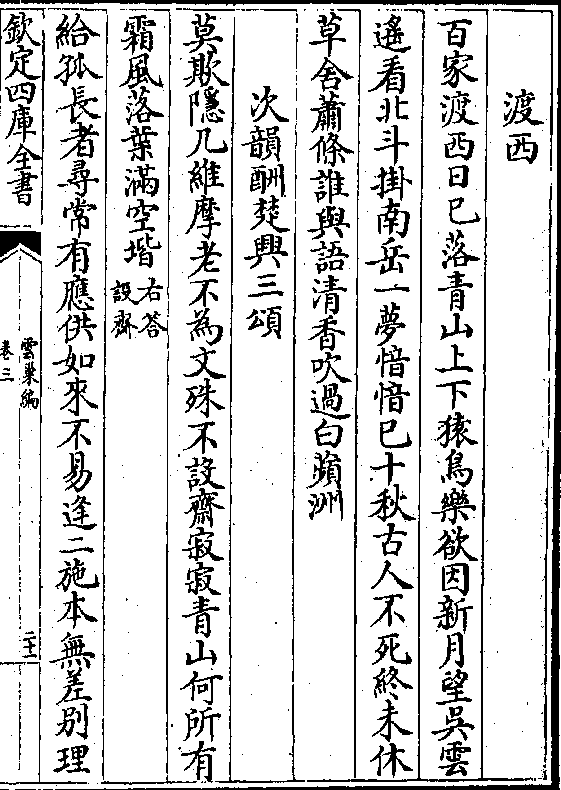 渡西
百家渡西日已落青山上下猿鳥樂欲因新月望吳雲
遙看北斗掛南岳一夢愔愔已十秋古人不死終未休
草舍蕭條誰與語清香吹過白蘋洲
次韻酬楚興三頌
莫欺隱几維摩老不為文殊不設齋寂寂青山何所有
霜風落葉滿空堦
右答
設齋
給孤長者尋常有應供如來不易逢二施本無差別理
欽定四庫全書
雲巢編
卷三
二十二